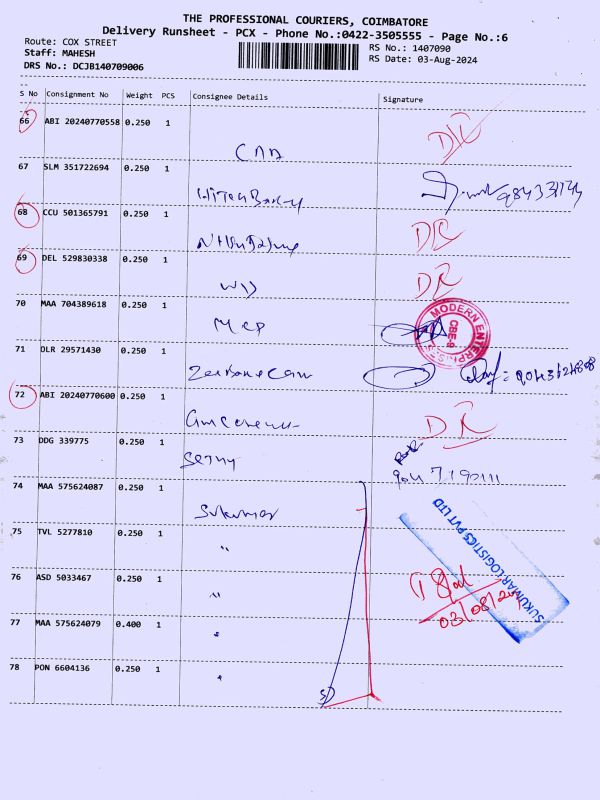 THE PROFESSIONAL COURIERS, COIMBATORE
Delivery Runsheet - PCX - Phone No.:0422-3505555 - Page No.:6
Route: COX STREET
Staff: MAHESH
DRS No.: DCJB140709006
RS No.: 1407090
RS Date: 03-Aug-2024
S No Consignment No Weight PCS Consignee Details Signature
66 ABI 20240770558 0.250 1 DR
67 SLM 351722694 0.250 1
68 CCU 501365791 0.250 1 DR
69 DEL 529830338 0.250 1 DR
70 MAA 704389618 0.250 1 MCP
MODERN ENTERPRISES CBE-9
71 DLR 29571430 0.250 1
72 ABI 20240770600 0.250 1 DR
73 DDG 339775 0.250 1
74 MAA 575624087 0.250 1 Sukumar
75 TVL 5277810 0.250 1 "
76 ASD 5033467 0.250 1 "
77 MAA 575624079 0.400 1 "
78 PON 6604136 0.250 1 "
SUKUMAR LOGISTICS PVT LTD
03/08/24